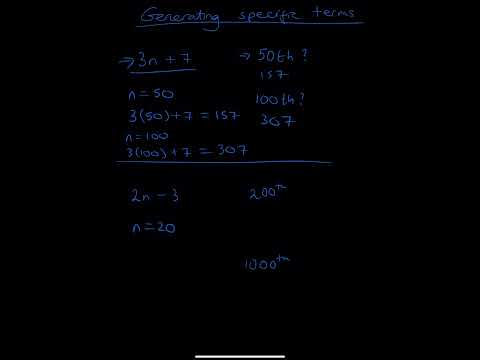 Generating specific terms
→ 3n + 7
→ 50th?
157
n = 50
100th?
3(50) + 7 = 157
307
n = 100
3(100) + 7 = 307
2n - 3
200th
n = 20
1000th